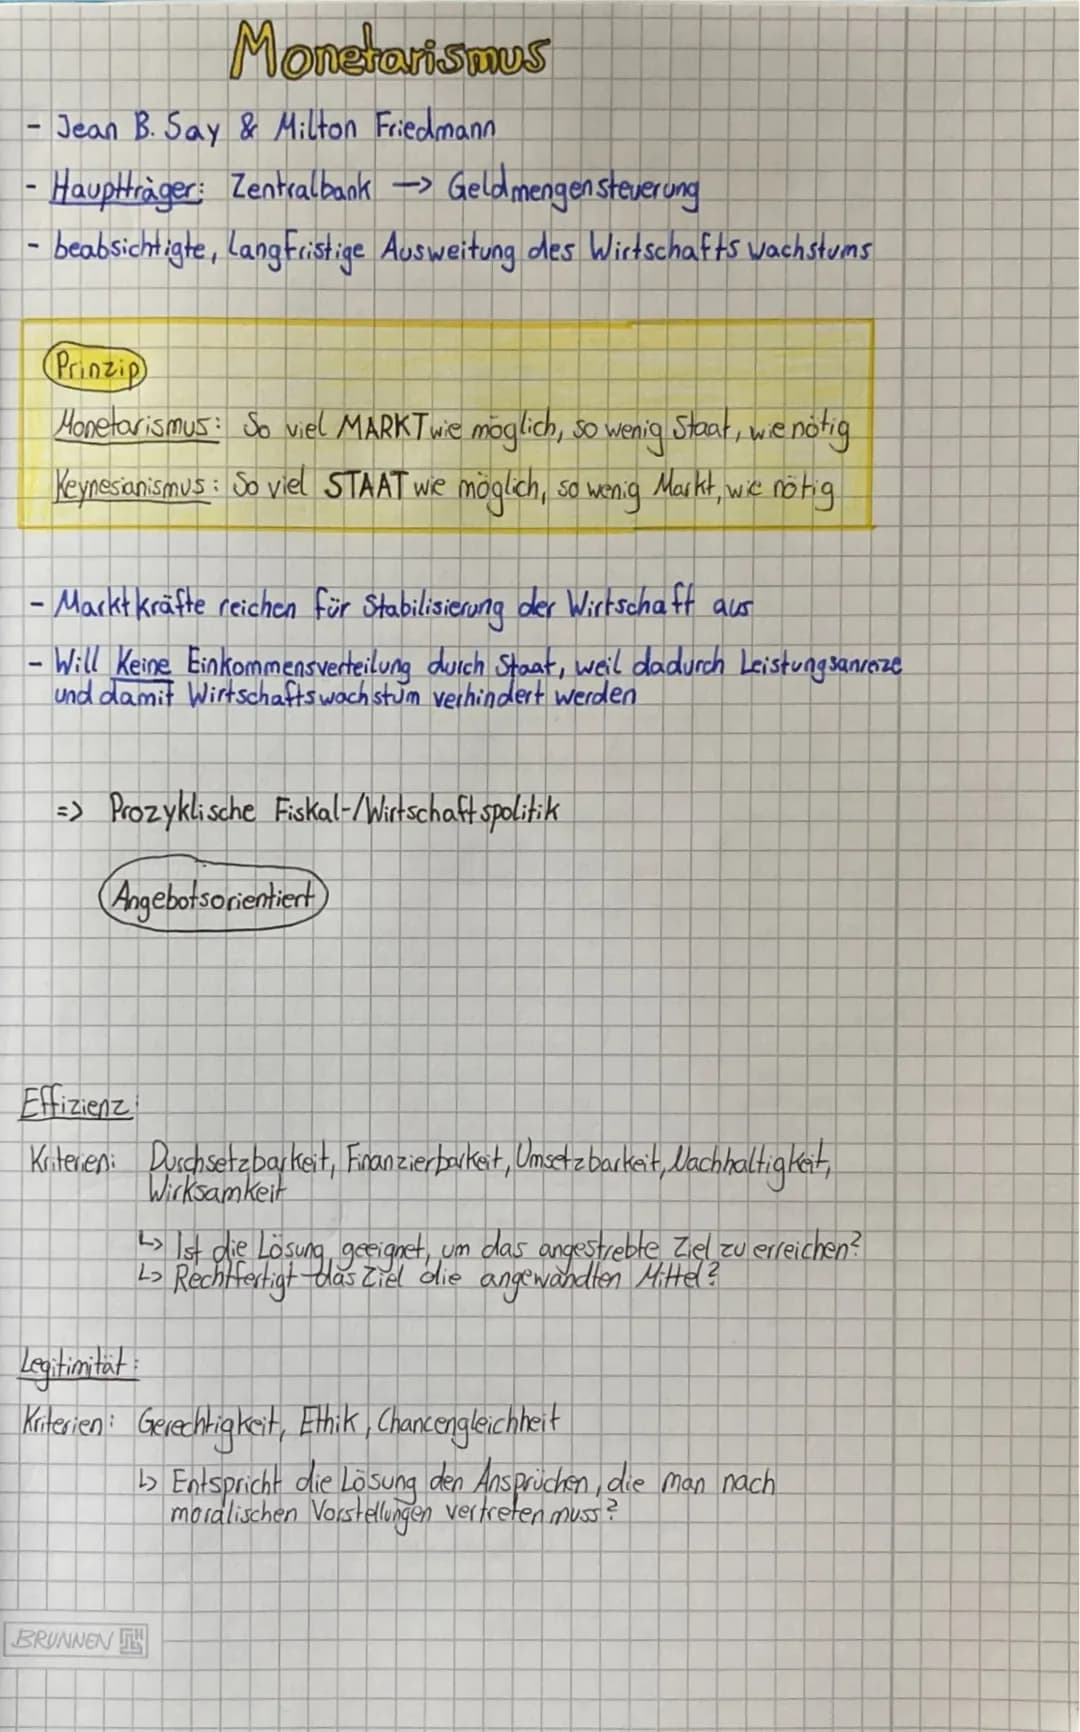 Monetarismus
- Jean B. Say & Milton Friedmann
- Hauptträger: Zentralbank -> Geldmengensteuerung
- beabsichtigte, langfristige Ausweitung des Wirtschaftswachstums
Prinzip
Monetarismus: So viel MARKT wie möglich, so wenig Staat, wie nötig
Keynesianismus: So viel STAAT wie möglich, so wenig Markt, wie nötig
- Marktkräfte reichen für Stabilisierung der Wirtschaft aus
- Will keine Einkommensverteilung durch Staat, weil dadurch Leistungsanreize
und damit Wirtschaftswachstum verhindert werden
=> Prozyklische Fiskal-/Wirtschaftspolitik
Angebotsorientiert
Effizienz:
Kriterien: Durchsetzbarkeit, Finanzierbarkeit, Umsetzbarkeit, Nachhaltigkeit,
Wirksamkeit
↳ Ist die Lösung geeignet, um das angestrebte Ziel zu erreichen?
↳ Rechtfertigt das Ziel die angewandten Mittel?
Legitimität:
Kriterien: Gerechtigkeit, Ethik, Chancengleichheit
↳ Entspricht die Lösung den Ansprüchen, die man nach
moralischen Vorstellungen vertreten muss?
BRUNNEN